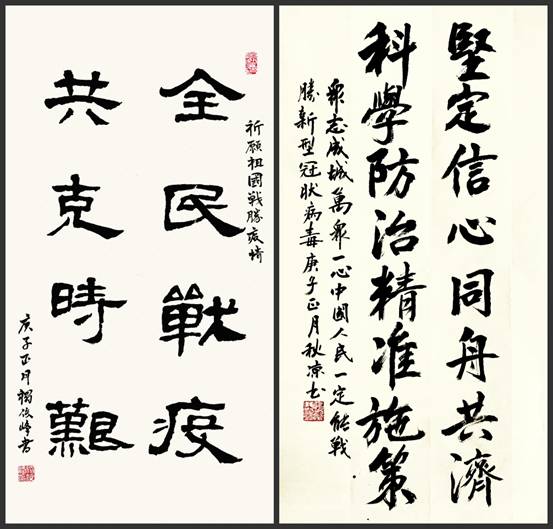 祈願祖國戰勝疫情
全民戰疫
共克時艱
庚子正月俊峰書
堅定信心同舟共濟
科學防治精准施策
衆志成城萬衆一心中國人民一定能戰
勝新型冠狀病毒庚子正月秋凉书